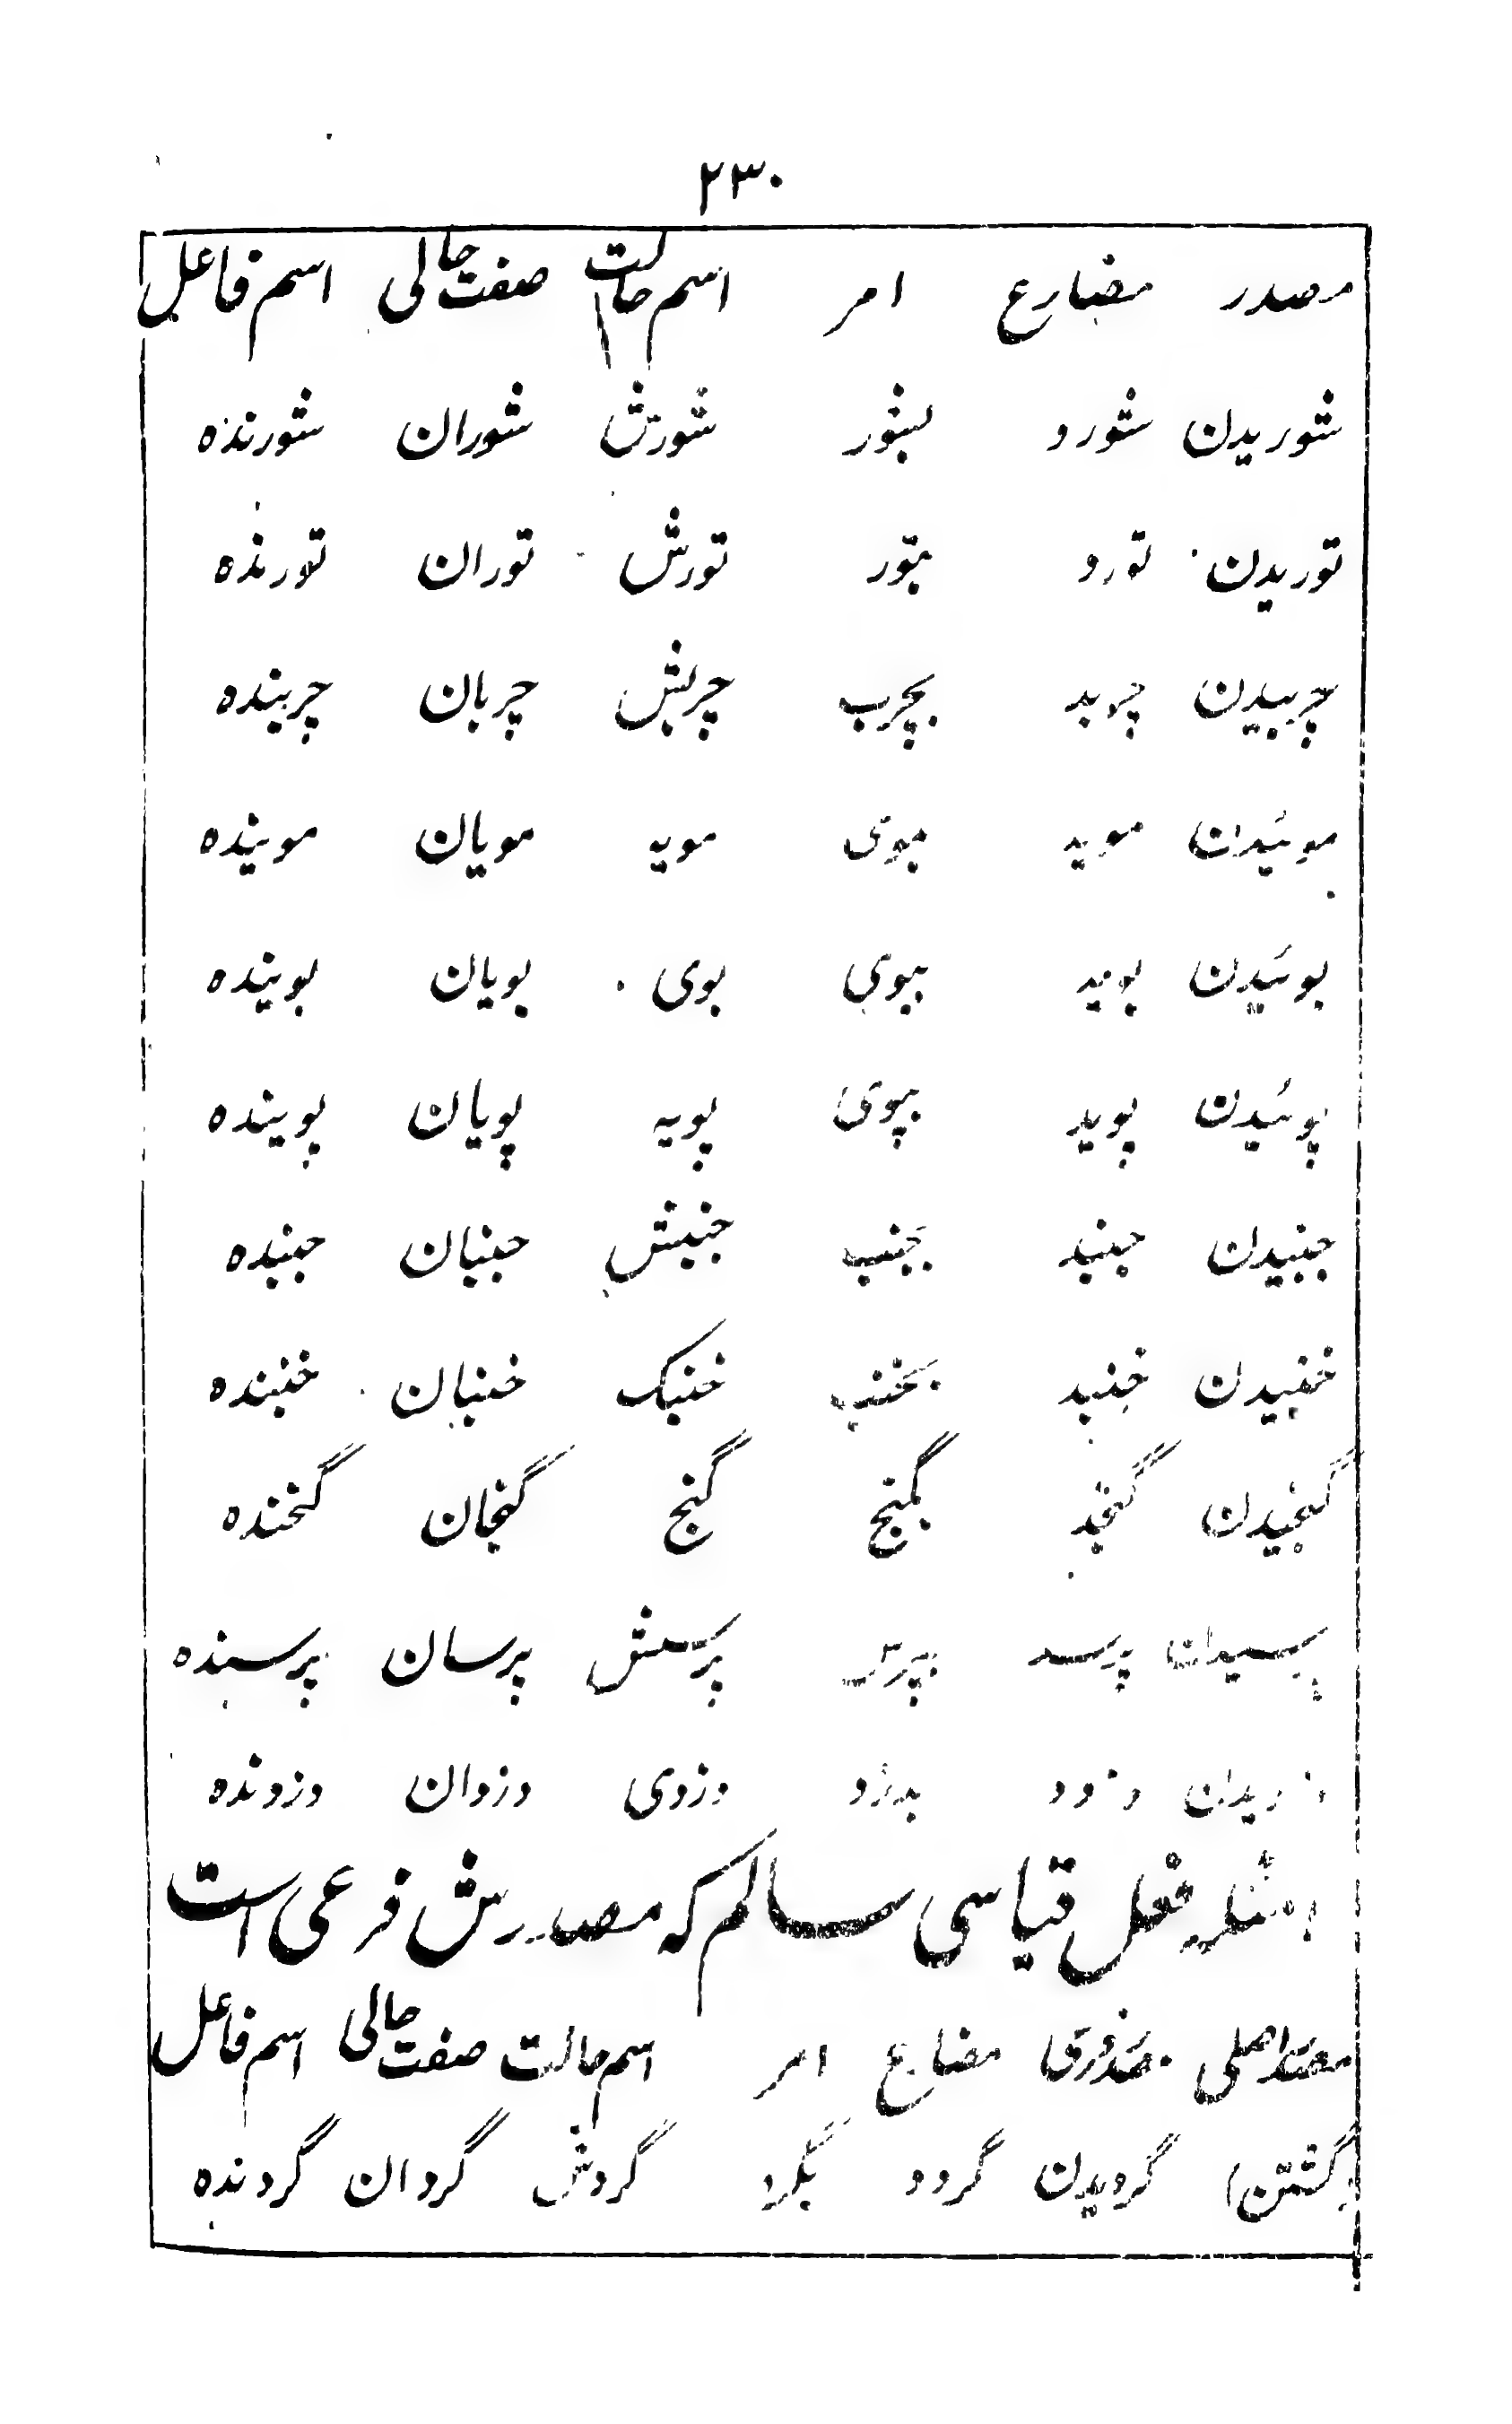 ۲۳۰
مصدر مضارع امر اسم حالت صفت حالی اسم فاعل
شوریدن شورد بشور شورش شوران شورنده
توریدن تورد بتور تورش توران تورنده
چربیدن چربد بچرب چربش چربان چربنده
موئیدن موید بموی مویه مویان موینده
بوئیدن بوید ببوی بوی بویان بوینده
پوئیدن پوید بپوی پویه پویان پوینده
جنبیدن جنبد بجنب جنبش جنبان جنبنده
خنبیدن خنبد بخنب خنبک خنبان خنبنده
گنجیدن گنجد بگنج گنج گنجان گنجنده
پرسیدن پرسد بپرس پرسش پرسان پرسنده
دزدیدن دزدد بدزد دزدی دزدان دزدنده
امثلهٔ فعل قیاسی سالم که مصدرش فرعی است
مصدر اصلی مصدر فرعی مضارع امر اسم حالت صفت حالی اسم فاعل
(گشتن) گردیدن گردد بگرد گردش گردان گردنده